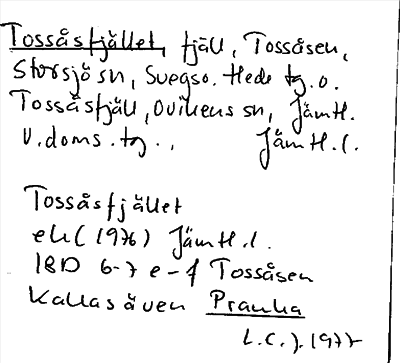 Tossåsfjället, fjäll, Tossåsen,
Storsjö sn, Svegs o. Hede tg. o.
Tossåsfjäll, Ovikens sn, Jämtl.
v. doms. tg., Jämtl. l.
Tossåsfjället
ek (1976) Jämtl. l.
18D 6-7 e-f Tossåsen
Kallas även
L.C.J. 1977